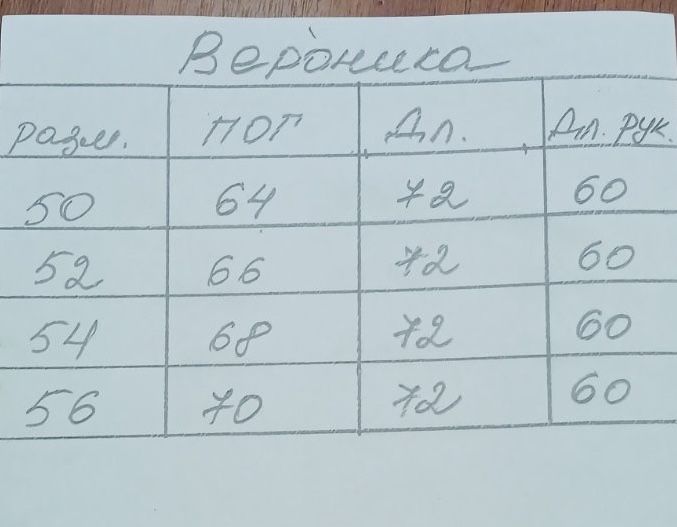 Вероника
разм. ПОГ Дл. Дл. рук.
50 64 72 60
52 66 72 60
54 68 72 60
56 70 72 60